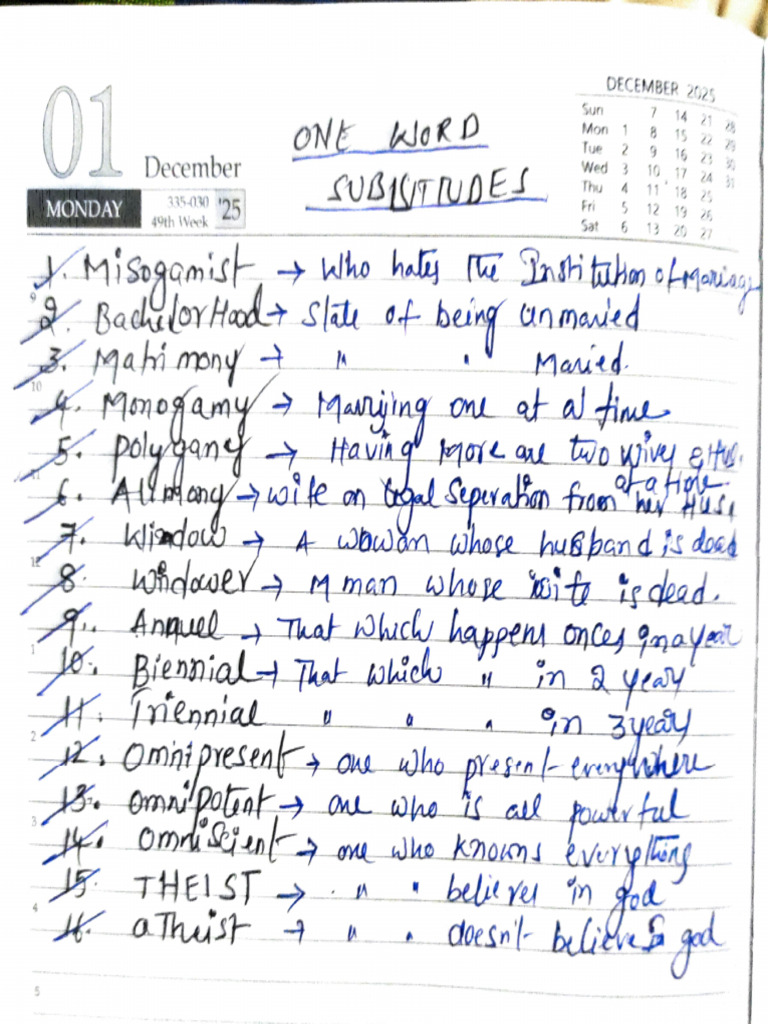 01
December
MONDAY
335-030
49th Week
'25
ONE WORD
SUBISITUDES
DECEMBER 2025
Sun 7 14 21 28
Mon 1 8 15 22 29
Tue 2 9 16 23 30
Wed 3 10 17 24 31
Thu 4 11 18 25
Fri 5 12 19 26
Sat 6 13 20 27
1. Misogamist → Who hates The Institution of Mariage
9
2. BachelorHood → State of being Unmaried
3. Matrimony → " " Maried.
10
4. Monogamy → Marrying one at a time
5. polygany → Having More are two wives & Hus.
at a time
6. Alimony → wife on legal Seperation from her Hus
7. Window → A wowan whose husband is dead
12
8. Widower → A man whose wife is dead.
9. Annuel → That which happens onces in a year
1
10. Biennial → That which " in 2 year
11. Triennial " " " in 3 year
2
12. Omnipresent → one who present everywhere
13. omnipotent → one who is all powerful
3
14. omniscient → one who knowns everything
15. THEIST → " " believes in god
4
16. aTheist → " " doesn't believe god
5